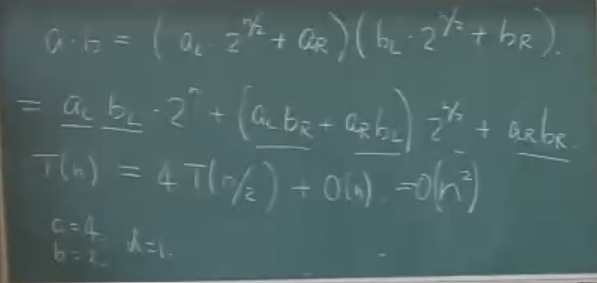 a·b = (a_L · 2^{n/2} + a_R)(b_L · 2^{n/2} + b_R).
= a_L b_L · 2^n + (a_L b_R + a_R b_L) 2^{n/2} + a_R b_R.
T(n) = 4 T(n/2) + O(n) = O(n^2)
a=4
b=2 d=1.